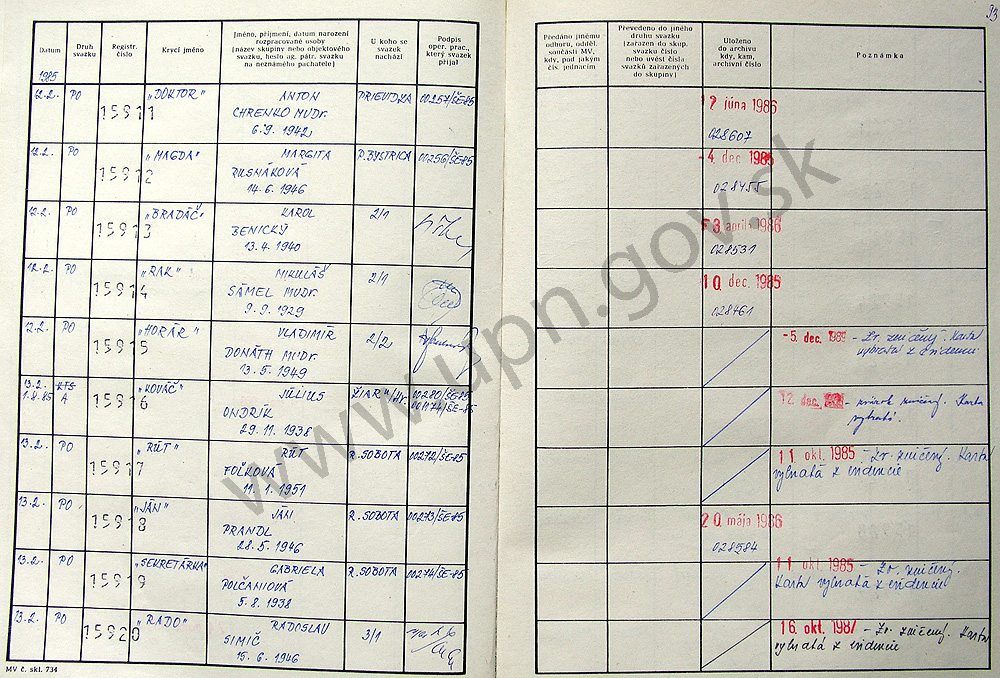 93
Datum
Druh svazku
Registr. číslo
Krycí jméno
Jméno, příjmení, datum narození
rozpracované osoby
(název skupiny nebo objektového
svazku, heslo ag. pátr. svazku
na neznámého pachatele)
U koho se
svazek
nachází
Podpis
oper. prac.,
který svazek
přijal
Předáno jinému
odboru, odděl.
součásti MV,
kdy, pod jakým
čís. jednacím
Převedeno do jiného
druhu svazku
(zařazen do skup.
svazku číslo
nebo uvést čísla
svazků zařazených
do skupiny)
Uloženo
do archivu
kdy, kam,
archivní číslo
Poznámka
1985
12.2. PO 15911 "DOKTOR" ANTON PRIEVIDZA 00257/ŠE-85
CHRENKO MUDr.
6.9. 1942
júna 1986
028607
12.2. PO 15912 "MAGDA" MARGITA P. BYSTRICA 00256/ŠE-85
RUSNÁKOVÁ
14.6. 1946
-4. dec. 1985
028455
12.2. PO 15913 "BRADÁČ" KAROL 2/1
BENICKÝ
13.4. 1940
3 apríla 1986
028531
12.2. PO 15914 "RAK" MIKULÁŠ 2/1
SÁMEL MUDr.
9.9. 1929
10 dec. 1985
028461
12.2. PO 15915 "HORÁR" VLADIMÍR 2/2
DONÁTH MUDr.
13.5. 1949
-5. dec. 1989 - Zv. zničený. Karta
vybratá z evidencie
13.2. KTS 15916 "KOVÁČ" JÚLIUS ŽIAR n/Hr. 00280/ŠE-85
1.8.85 A 001174/ŠE-85
ONDRÍK
29.11. 1938
12. dec. - zväzok zničený. Karta
vybratá.
13.2. PO 15917 "RÚT" RÚT R. SOBOTA 00272/ŠE-85
FOĽKOVÁ
11.1. 1951
11 okt. 1985 - Zv. zničený. Karta
vybratá z evidencie
13.2. PO 15918 "JÁN" JÁN R. SOBOTA 00273/ŠE-85
PRANDL
28.5. 1946
20 mája 1986
028584
13.2. PO 15919 "SEKRETÁRKA" GABRIELA R. SOBOTA 00274/ŠE-85
POLČANIOVÁ
5.8. 1938
11 okt. 1985 - Zv. zničený.
Karta vybratá z evidencie
13.2. PO 15920 "RADO" RADOSLAV 3/1
SIMIČ
15.6. 1946
16. okt. 1987 - Zv. zničený. Karta
vybratá z evidencie
MV č. skl. 734
www.upn.gov.sk